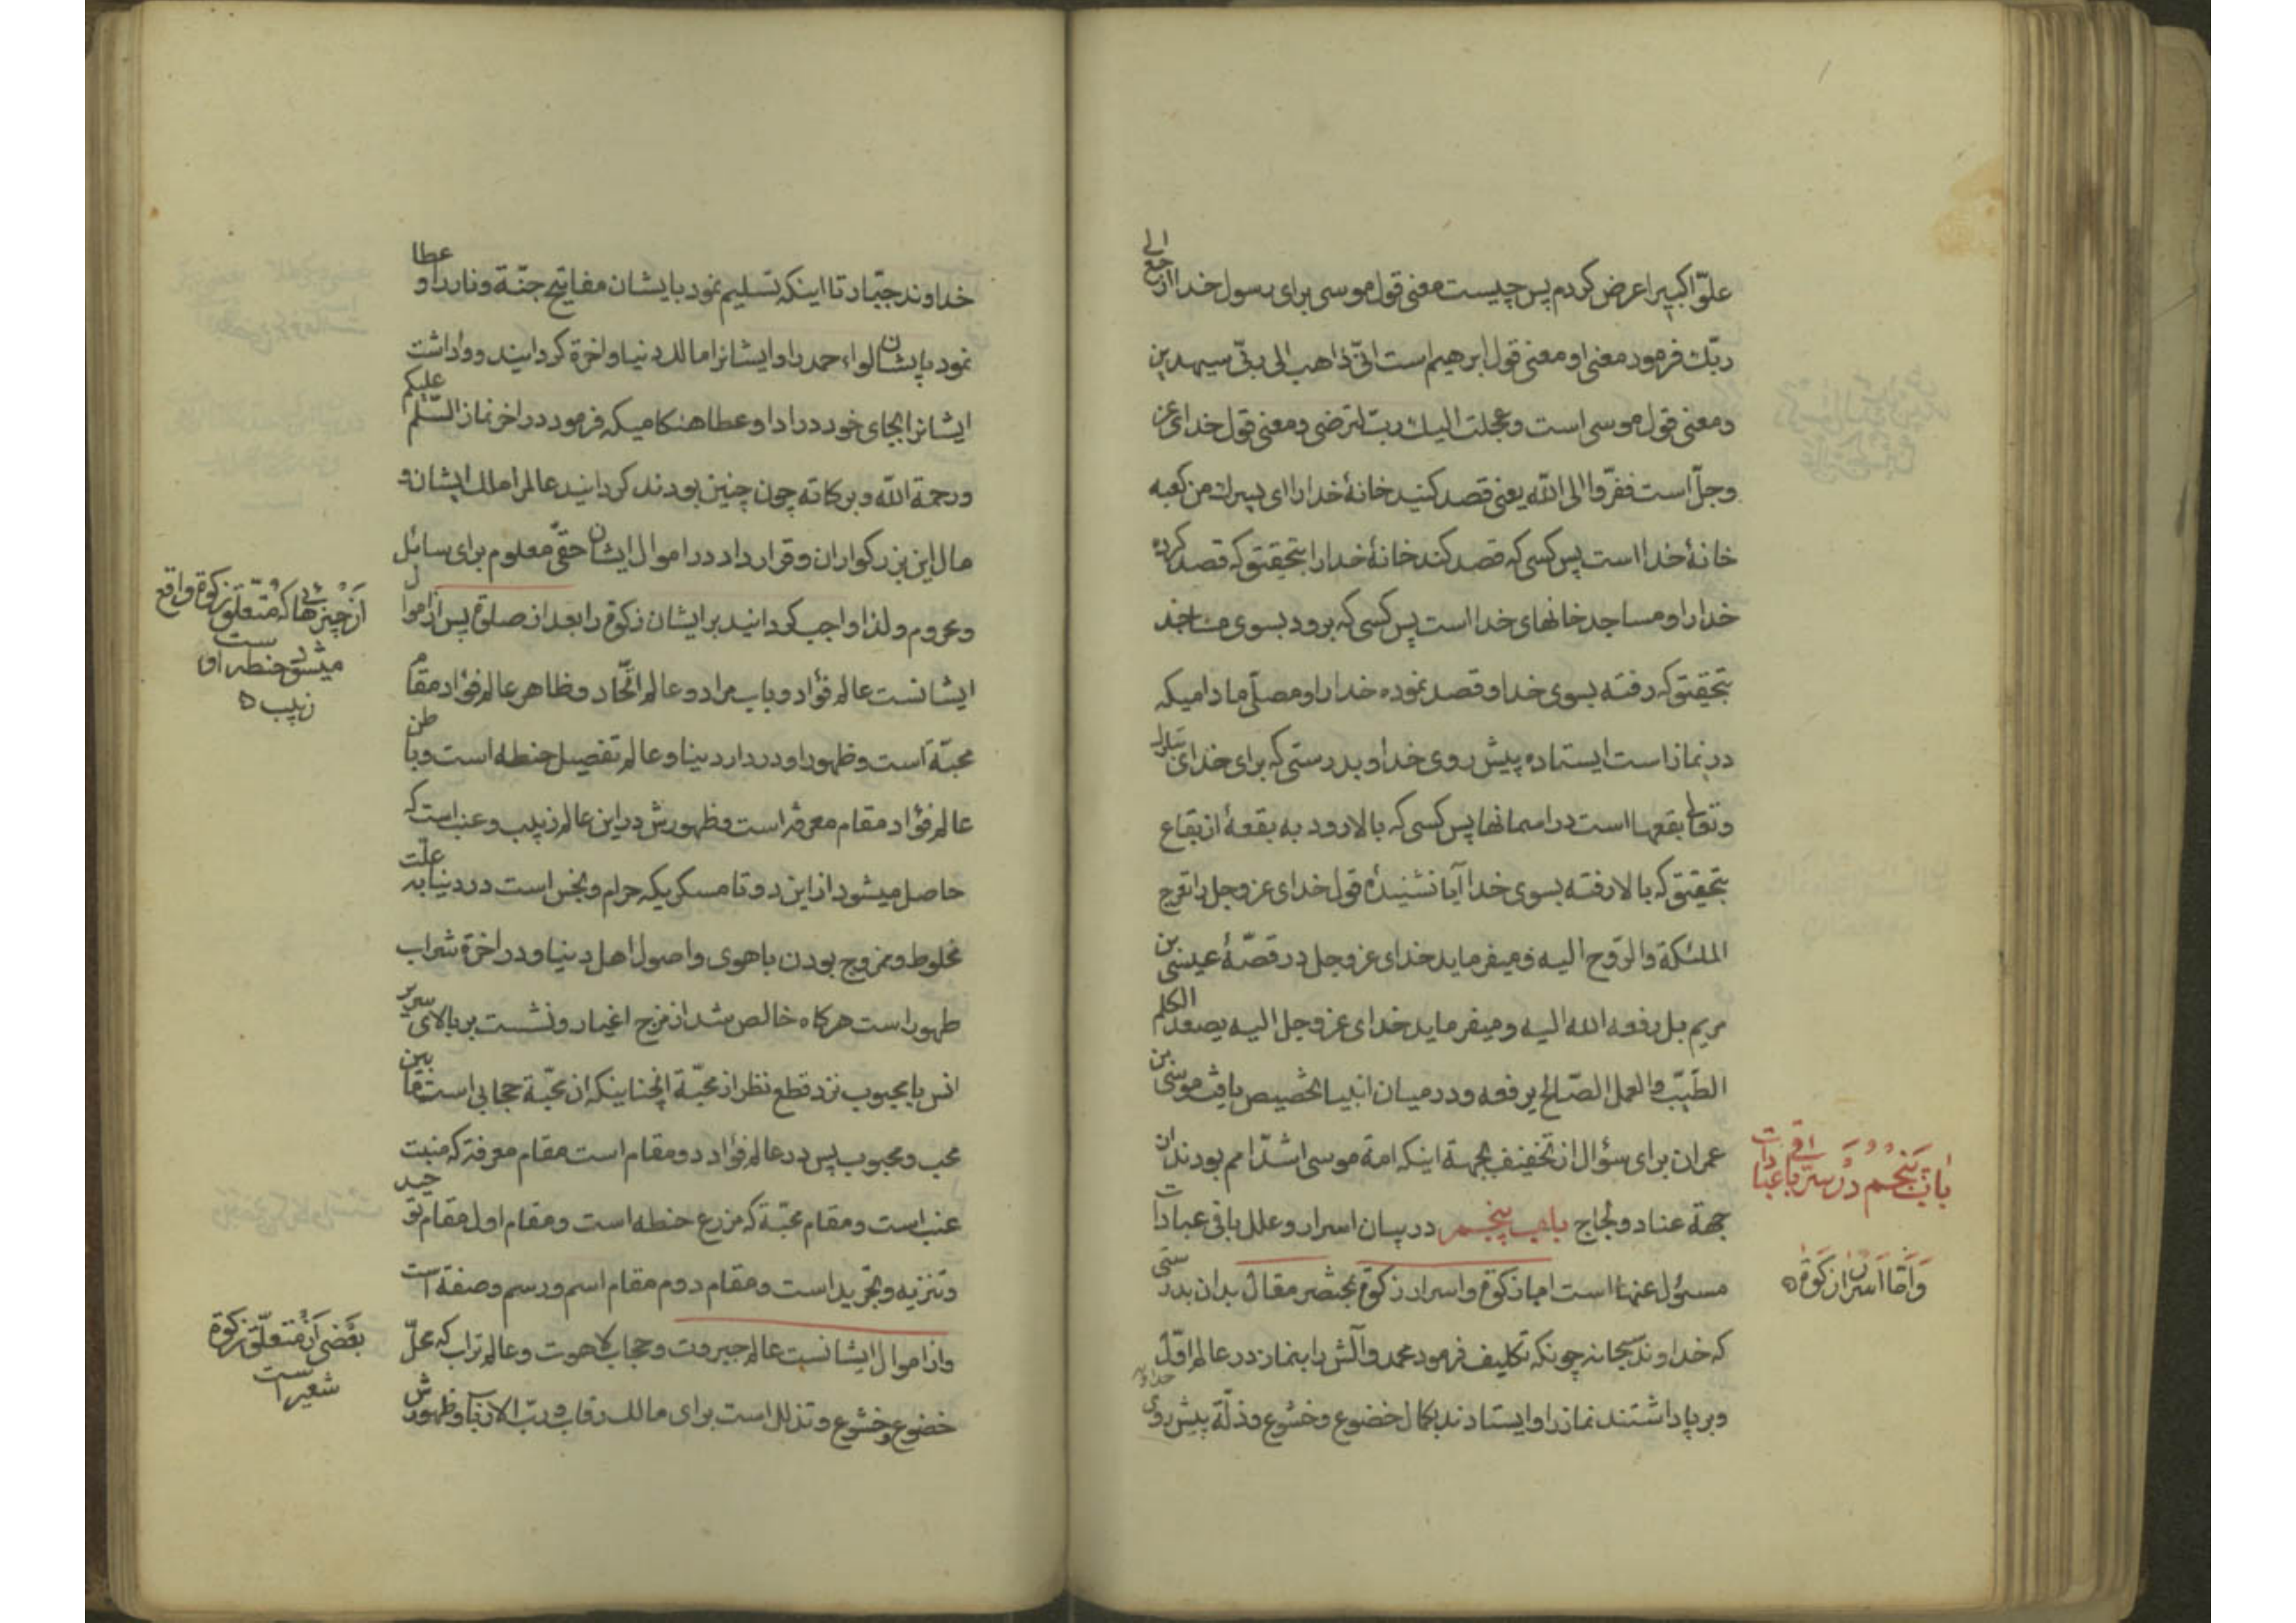 علوّا کبیرا عرض کردم پس چیست معنی قول موسی برای رسول خدا ارجع الی
ربّك فرمود معنی او معنی قول ابرهیم است انّی ذاهب الی ربّی سیهدین
و معنی قول موسی است و عجلت الیك ربّ لترضی و معنی قول خدای عز
و جلّ است ففرّوا الی اللّه یعنی قصد کنید خانهٔ خدا را ای پسرك من کعبه
خانهٔ خدا است پس کسی که قصد کند خانهٔ خدا را بتحقیق که قصد کرده
خدا را و مساجد خانهای خدا است پس کسی که برود بسوی مساجد
بتحقیق که رفته بسوی خدا و قصد نموده خدا را و مصلّی مادامیکه
در نماز است ایستاده پیش روی خدا و بدرستی که برای خدای تبارك
و تعالی بقعها است در اسمانها پس کسی که بالا رود به بقعهٔ از بقاع
بتحقیق که بالا رفته بسوی خدا آیا نشنیدهٔ قول خدای عز و جل را تعرج
الملئکة والرّوح الیه و میفرماید خدای عز و جل در قصّهٔ عیسی بن
مریم بل رفعه الله الیه و میفرماید خدای عز و جل الیه یصعد الکلم
الطیّب والعمل الصّالح یرفعه و در میان انبیا تخصیص یافت موسی بن
عمران برای سؤال از تخفیف بجهة اینکه امة موسی اشدّ امم بودند از
جهة عناد و لجاج باب پنجم در بیان اسرار و علل باقی عبادات
مسئول عنها است اما زکوة و اسرار زکوة بمختصر مقال بدان بدرستی
که خداوند سبحانه چونکه تکلیف فرمود محمد و آلش را بنماز در عالم اوّل
و برپا داشتند نماز را و ایستادند بکمال خضوع و خشوع و ذلّة پیش روی
باب پنجم در سرّ باقی عبادات
و امّا اسرار زکوة
خداوند جبّار تا اینکه تسلیم نمود بایشان مفاتیح جنّة و نار را و عطا
نمود بایشان لواء حمد را و ایشانرا مالك دنیا و اخرة کردانید و واداشت
ایشانرا بجای خود در ادا و عطا هنکامیکه فرمود در اخر نماز السّلم علیکم
و رحمة اللّه و برکاته چون چنین بودند کردانید عالمرا ملك ایشان و
مال این بزرکواران و قرار داد در اموال ایشان حقّی معلوم برای سائل
و محروم ولذا واجب کردانید بر ایشان زکوة را بعد از صلوة پس از اموال
ایشانست عالم فؤاد و باب مراد و عالم اتّحاد و ظاهر عالم فؤاد مقام
محبّة است و ظهور او در دار دنیا و عالم تفصیل حنطه است و باطن
عالم فؤاد مقام معرفة است و ظهورش در این عالم زبیب و عنب است که
حاصل میشود از این دو تا مسکریکه حرام و نجس است در دنیا به علّت
مخلوط و ممزوج بودن با هوی و اصول اهل دنیا و در اخرة شراب
طهور است هرکاه خالص شد از مزج اغیار و نشست بر بالای سریر
انس با محبوب نزد قطع نظر از محبّة انچنا نیکه ان محبّة حجابی است ما بین
محب و محبوب پس در عالم فؤاد دو مقام است مقام معرفة که منبت
عنب است و مقام محبّة که مزرع حنطه است و مقام اول مقام توحید
و تنزیه و تجرید است و مقام دوم مقام اسم و رسم و صفة است
و از اموال ایشانست عالم جبروت و حجاب لاهوت و عالم تراب که محلّ
خضوع و خشوع و تذلل است برای مالك رقاب و ربّ الارباب و ظهورش
از چیزهائی که متعلّق زکوة واقع
میشود حنطه است و
زبیب
بعضی از متعلّق زکوة
شعیر است